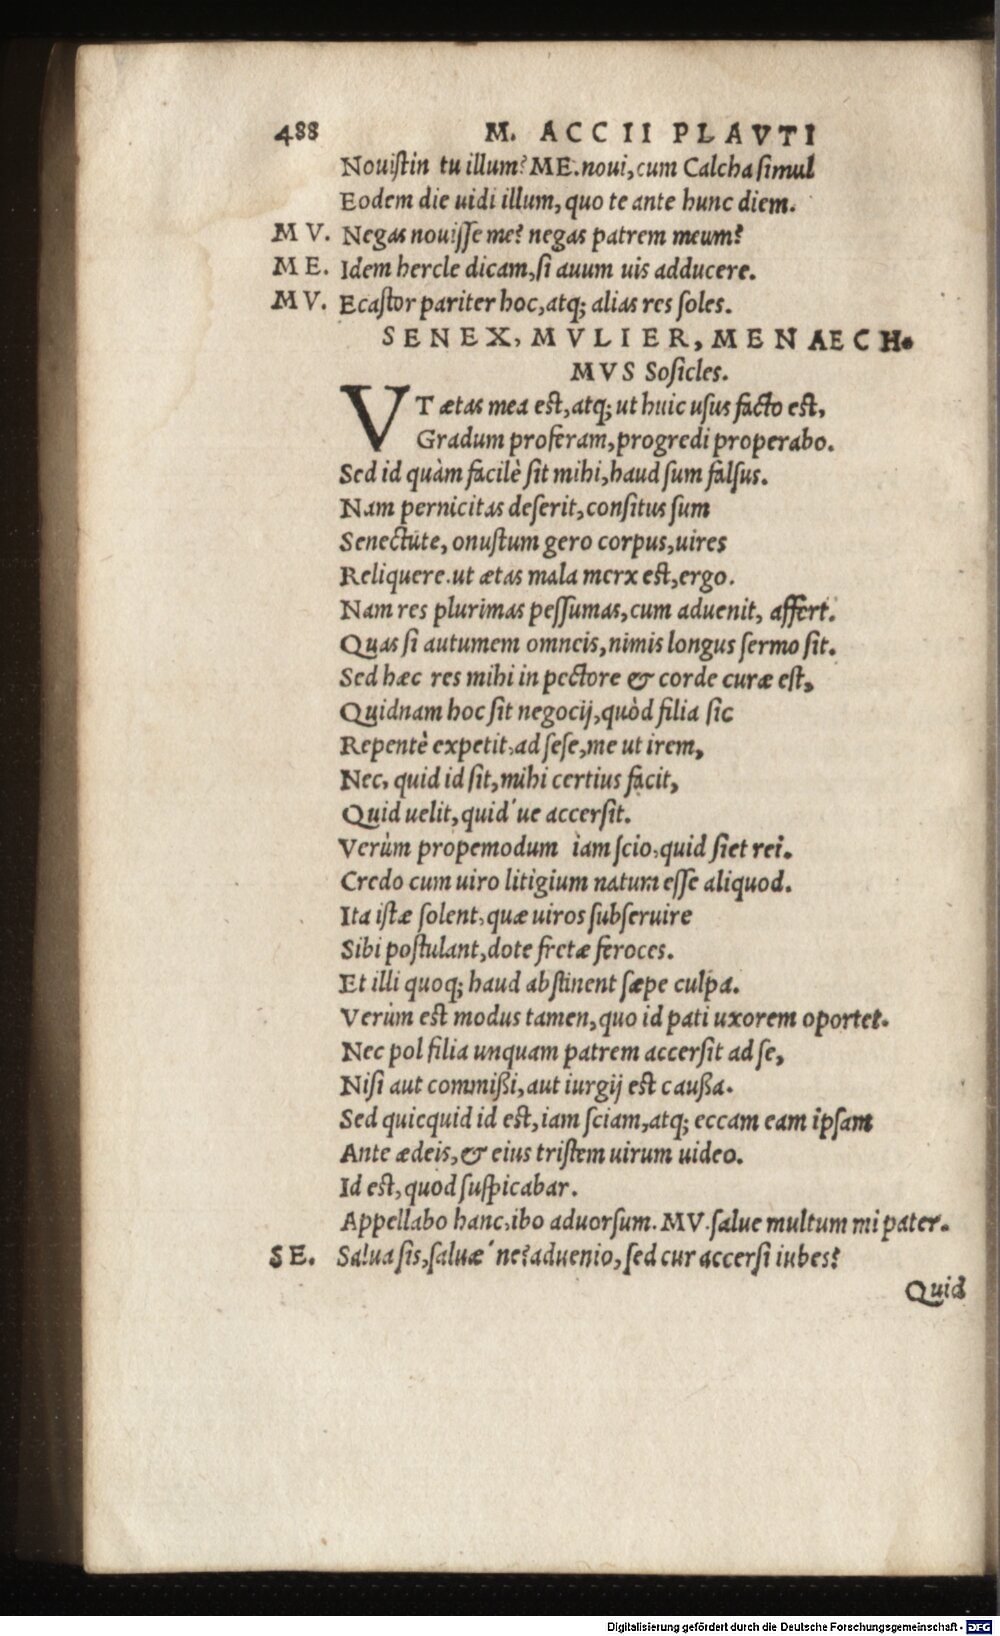 488 M. ACCII PLAVTI
Nouiſtin tu illum? ME. noui, cum Calcha ſimul
Eodem die uidi illum, quo te ante hunc diem.
MV. Negas nouiſſe me? negas patrem meum?
ME. Idem hercle dicam, ſi auum uis adducere.
MV. Ecaſtor pariter hoc, atq; alias res ſoles.
SENEX, MVLIER, MENAECH-
MVS Soſicles.
VT ætas mea eſt, atq; ut huic uſus facto eſt,
Gradum proferam, progredi properabo.
Sed id quàm facilè ſit mihi, haud ſum falſus.
Nam pernicitas deſerit, conſitus ſum
Senectute, onuſtum gero corpus, uires
Reliquere. ut ætas mala merx eſt, ergo.
Nam res plurimas peſſumas, cum aduenit, affert.
Quas ſi autumem omneis, nimis longus ſermo ſit.
Sed hæc res mihi in pectore & corde curæ eſt,
Quidnam hoc ſit negocij, quòd filia ſic
Repentè expetit, ad ſeſe, me ut irem,
Nec, quid id ſit, mihi certius facit,
Quid uelit, quid'ue accerſit.
Verùm propemodum iam ſcio, quid ſiet rei.
Credo cum uiro litigium natum eſſe aliquod.
Ita iſtæ ſolent, quæ uiros ſubſeruire
Sibi poſtulant, dote fretæ feroces.
Et illi quoq; haud abſtinent ſæpe culpa.
Verùm eſt modus tamen, quo id pati uxorem oportet.
Nec pol filia unquam patrem accerſit ad ſe,
Niſi aut commißi, aut iurgij eſt caußa.
Sed quicquid id eſt, iam ſciam, atq; eccam eam ipſam
Ante ædeis, & eius triſtem uirum uideo.
Id eſt, quod ſuſpicabar.
Appellabo hanc, ibo aduorſum. MV. ſalue multum mi pater.
SE. Salua ſis, ſaluæ'ne? aduenio, ſed cur accerſi iubes?
Quid
Digitalisierung gefördert durch die Deutsche Forschungsgemeinschaft - DFG